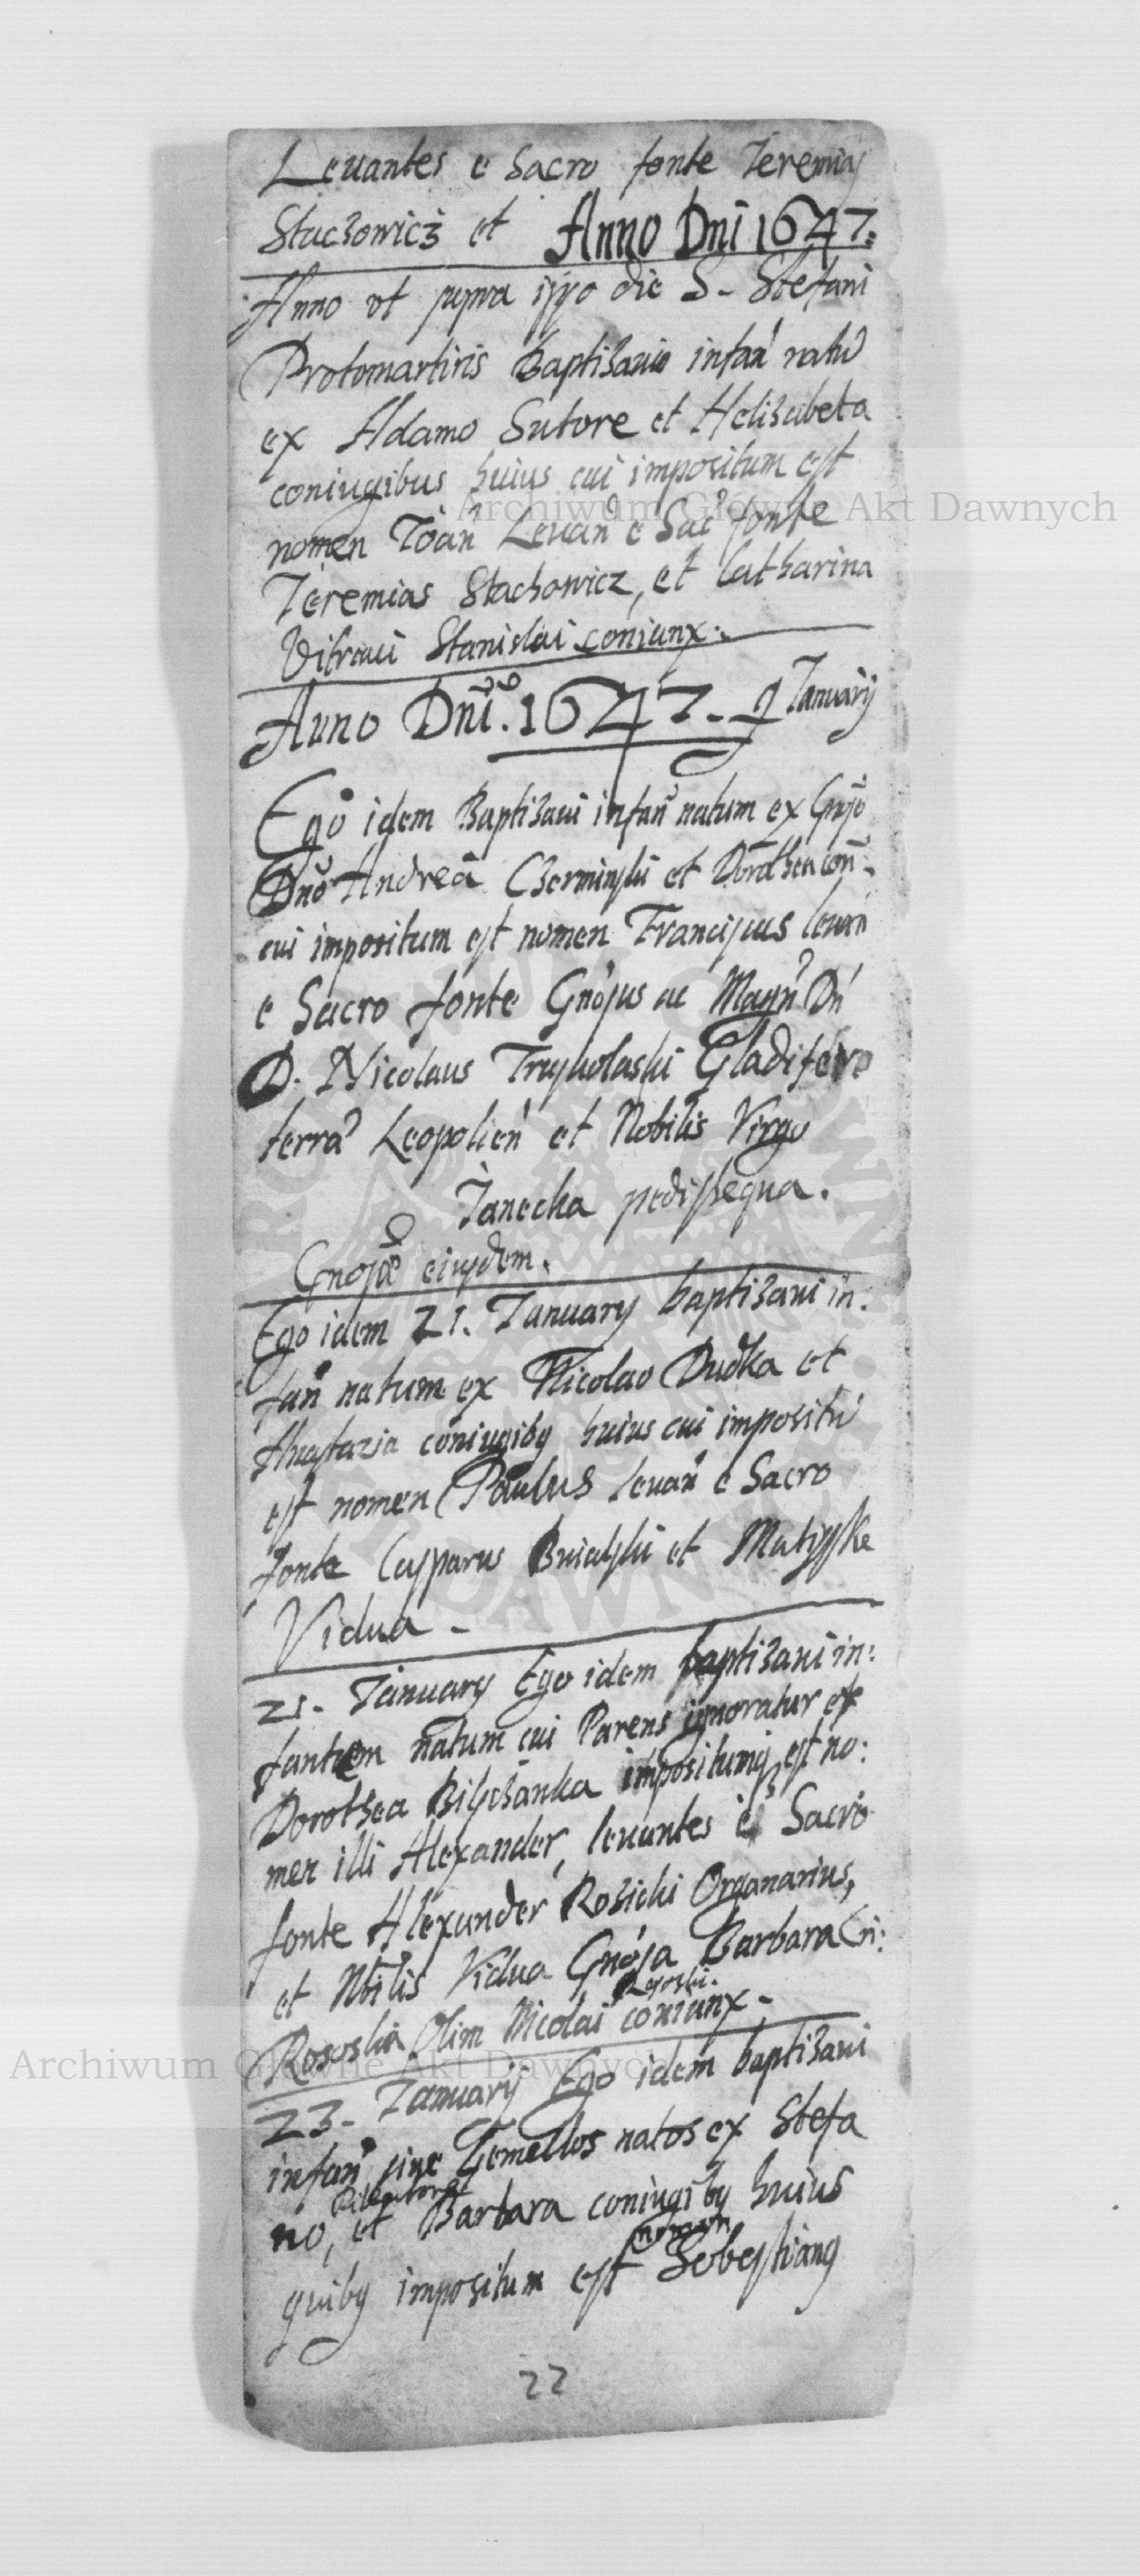 Leuantes e Sacro fonte Jeremias
Stachowicz et Anno Dni 1647.
Anno vt supra ipso die S. Stefani
Protomartiris Baptizaui infan natu
ex Adamo Sutore et Helizabeta
coniugibus huius cui impositum est
nomen Joan Leuan e Sac fonte
Jeremias Stachowicz, et Catharina
Vitreaui Stanislai coniunx.
Anno Dni. 1647. 9 January
Ego idem Baptizaui infan natum ex Gnoso
Dno Andrea Czerminski et Dorothea con.
cui impositum est nomen Franciscus leuan
e Sacro fonte Gnosus ac Magn Dn
D. Nicolaus Gladifero
terra Leopolien et Nobilis Virgo
Janecka pedissequa.
Gnosae eiusdem.
Ego idem 21. January baptizaui in:
fan natum ex Nicolao Dudka et
Anastazia coniugibus huius cui impositu
est nomen Paulus leuan e Sacro
fonte Casparus et Matysske
Vidua -
21. January Ego idem baptizaui in:
fantem natum cui Parens ignoratur ex
Dorothea impositumq est no:
men illi Alexander, leuantes e Sacro
fonte Alexander Rozicki Organarius,
et Nbilis Vidua Gnosa Barbara
Rososka Olim Nicolai coniunx.
23. January Ego idem baptizaui
infan siue Gemellos natos ex Stefa
no, et Barbara coniugibus huius
quibus impositum est nomen Sebestianus
22
Archiwum Główne Akt Dawnych
Archiwum Główne Akt Dawnych